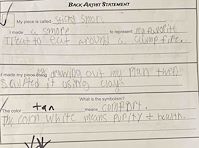 BACK ARTIST STATEMENT
My piece is called
I made a smore to represent my favorite
Treat to eat around a camp fire.
I made my piece using drawing out my plan then
sculpted it using clay.
What is the symbolism?
The color tan means comfort.
The color white means purity + health.